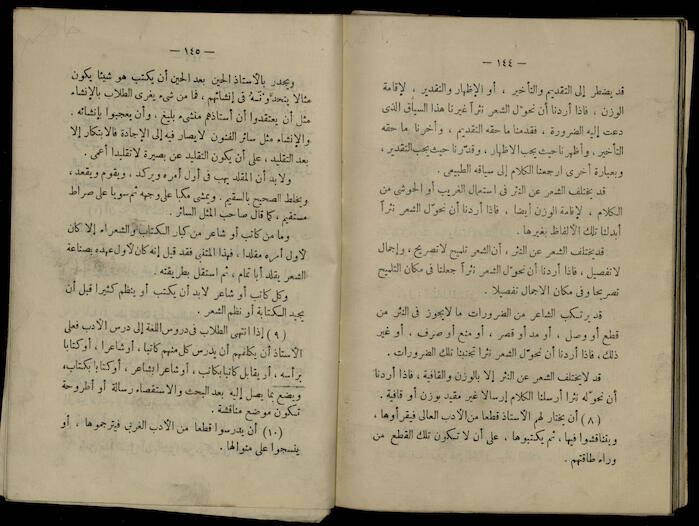 — ١٤٤ —
قد يضطر إلى التقديم والتأخير ، أو الإظهار والتقدير ، لإقامة
الوزن . فاذا أردنا أن نحوّل الشعر نثراً غيرنا هذا السياق الذى
دعت إليه الضرورة ، فقدمنا ما حقه التقديم ، وأخرنا ما حقه
التأخير وأظهرنا حيث يجب الاظهار ، وقدّرنا حيث يجب التقدير ،
وبعبارة أخرى ارجعنا الكلام إلى سياقه الطبيعى .
قد يختلف الشعر عن النثر فى استعمال الغريب أو الحوشى من
الكلام ، لإقامة الوزن أيضا ، فاذا أردنا أن نحوّل الشعر نثراً
أبدلنا تلك الألفاظ بغيرها .
قد يختلف الشعر عن النثر ، أن الشعر تلميح لا تصريح ، وإجمال
لا تفصيل ، فاذا أردنا أن نحوّل الشعر نثراً جعلنا فى مكان التلميح
تصريحا وفى مكان الاجمال تفصيلا .
قد يرتكب الشاعر من الضرورات ما لا يجوز فى النثر من
قطع أو وصل ، أو مد أو قصر ، أو منع أو صرف ، أو غير
ذلك ، فاذا أردنا أن نحوّل الشعر نثرا تجنبنا تلك الضرورات .
قد لا يختلف الشعر عن النثر إلا بالوزن والقافية ، فاذا أردنا
أن نحوّله نثرا أرسلنا الكلام إرسالا غير مقيد بوزن أو قافية .
(٨) أن يختار لهم الأستاذ قطعا من الأدب العالى فيقرأوها ،
ويناقشوا فيها ، ثم يكتبوها ، على أن لا تكون تلك القطع من
وراء طاقتهم .
— ١٤٥ —
ويجدر بالأستاذ الحين بعد الحين أن يكتب هو شيئا يكون
مثالا يتحدّونه فى إنشائهم ، فما من شىء يغرى الطلاب بالإنشاء
مثل أن يعتقدوا أن أستاذهم منشىء بليغ ، وأن يعجبوا بإنشائه .
والإنشاء مثل سائر الفنون لا يصار فيه إلى الإجادة فالابتكار إلا
بعد التقليد ، على أن يكون التقليد عن بصيرة لا تقليدا أعمى .
ولا بد أن المقلد يهب فى أول أمره ويركد ، ويقوم ويقعد ،
ويخلط الصحيح بالسقيم . ويمشى مكبا على وجهه ثم سويا على صراط
مستقيم ، كما قال صاحب المثل السائر .
وما من كاتب أو شاعر من كبار الكتاب والشعراء إلا كان
لأول أمره مقلدا ، فهذا المتنبى فقد قيل إنه كان لأول عهده بصناعة
الشعر يقلد أبا تمام ، ثم استقل بطريقته .
وكل كاتب أو شاعر لابد أن يكتب أو ينظم كثيرا قبل أن
يجيد الكتابة أو نظم الشعر .
(٩) إذا انتهى الطلاب فى دروس اللغة إلى درس الأدب فعلى
الأستاذ أن يكلفهم أن يدرس كل منهم كاتبا ، أو شاعرا ، أو كتابا
برأسه . أو يقابل كاتبا بكاتب ، أو شاعرا بشاعر ، أو كتابا بكتاب ،
ويضع بما يصل إليه بعد البحث والاستقصاء رسالة أو أطروحة
تكون موضع مناقشة .
(١٠) أن يدرسوا قطعا من الأدب الغربى فيترجموها ، أو
ينسجوا على منوالها .